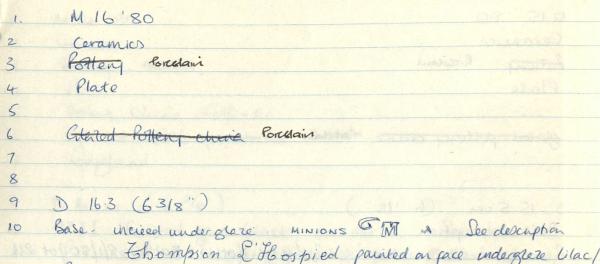 1. M 16'80
2 Ceramics
3 Pottery Porcelain
4 Plate
5
6 Glazed Pottery china Porcelain
7
8
9 D 16.3 (6 3/8")
10 Base: incised underglaze MINIONS M See description
Thompson L'Hospied painted on face underglaze lilac/